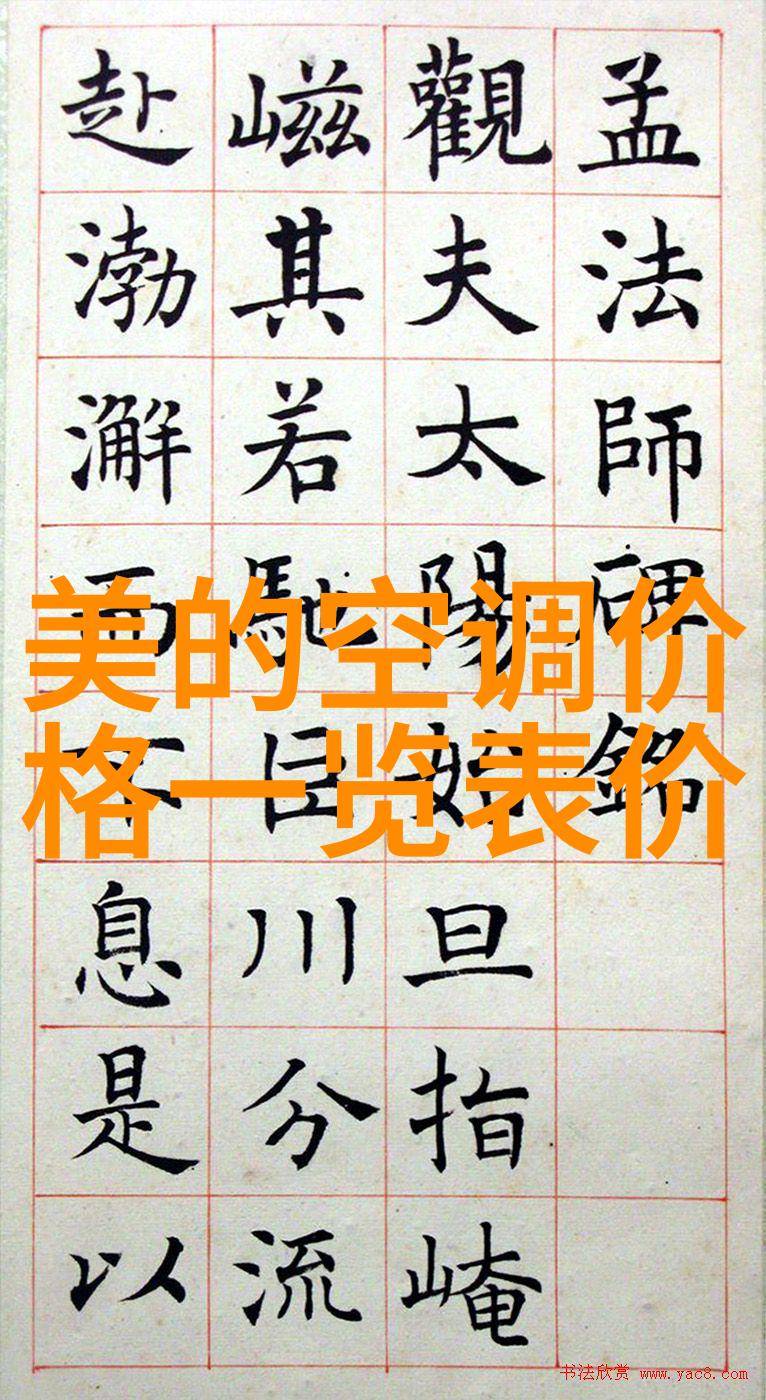 孟法師碑銘
觀夫太陽始旦指崦
嵫其若馳巨川分流
赴渤澥而不息是以
美的空调价
格一览表价
书法欣赏 www.yac8.com